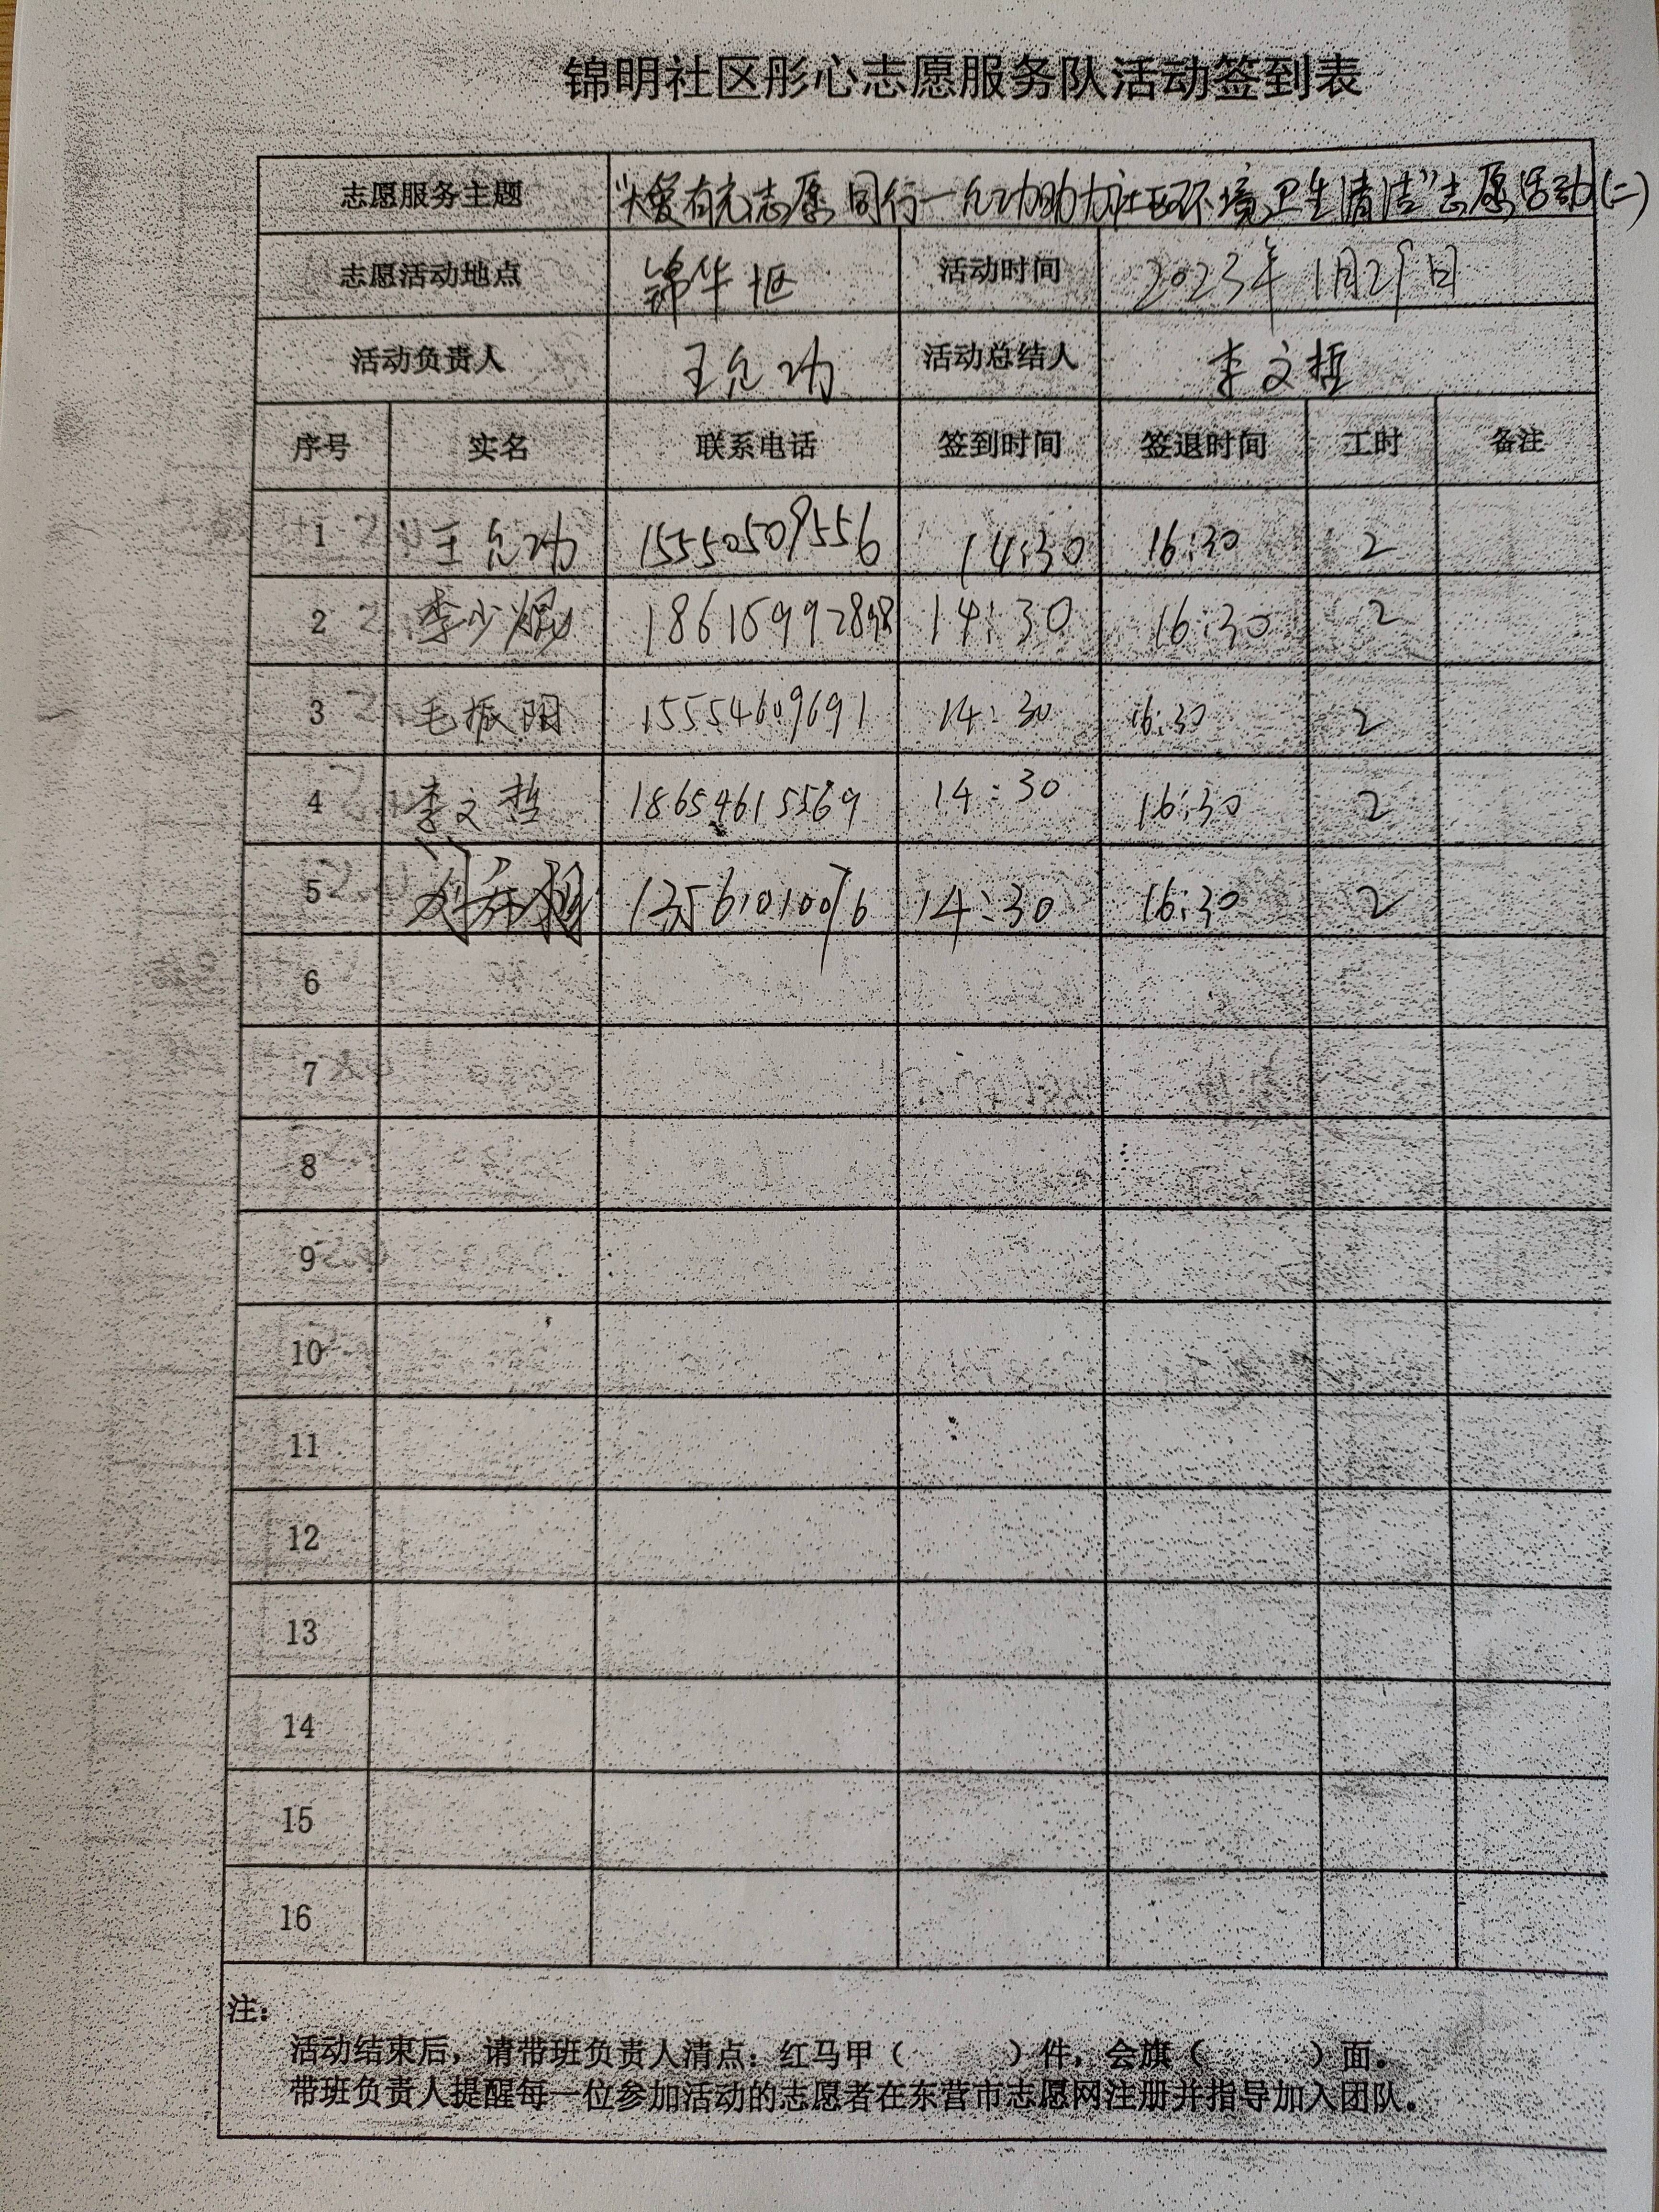 锦明社区彤心志愿服务队活动签到表
志愿服务主题 "大爱有充志愿同行一允功助力社区环境卫生清洁"志愿活动(二)
志愿活动地点 锦华 活动时间 2023年1月29日
活动负责人 王允功 活动总结人 李文哲
序号 实名 联系电话 签到时间 签退时间 工时 备注
1 王允功 15550509556 14:30 16:30 2
2 李少 14:30 16:30 2
3 毛振阳 15554609691 14:30 16:30 2
4 李文哲 18654615569 14:30 16:30 2
5 14:30 16:30 2
6
7
8
9
10
11
12
13
14
15
16
注:
活动结束后,请带班负责人清点:红马甲( )件,会旗( )面。
带班负责人提醒每一位参加活动的志愿者在东营市志愿网注册并指导加入团队。